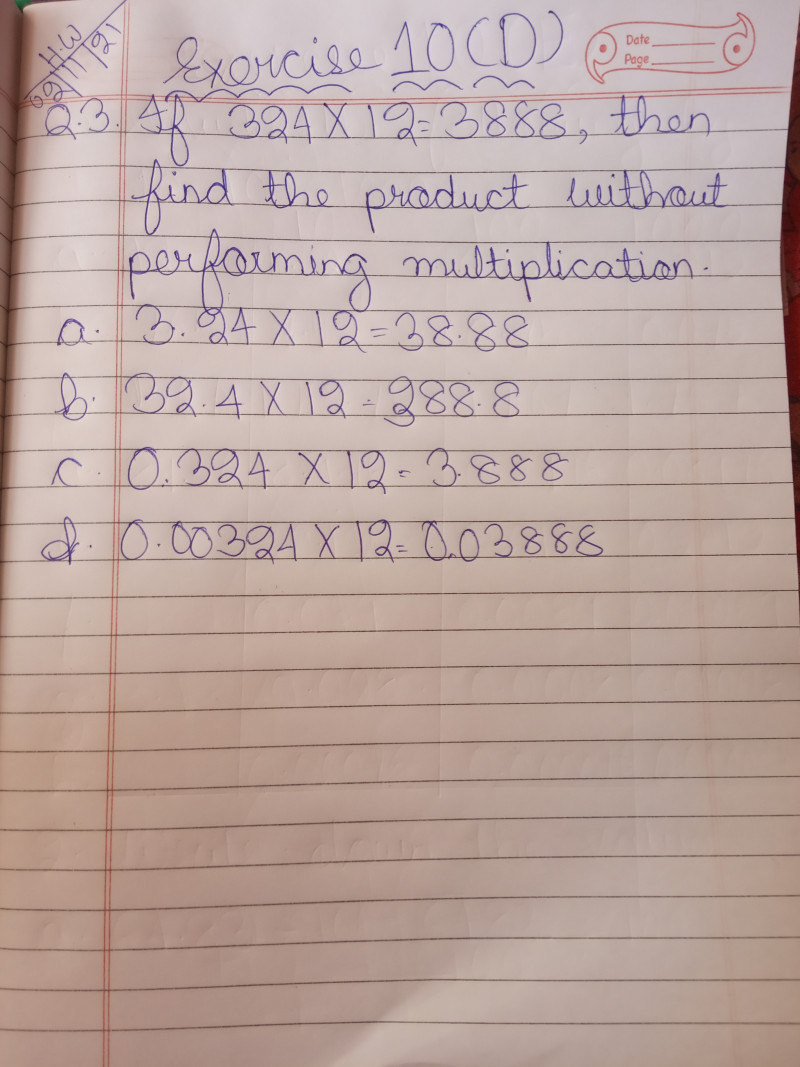 H.W
09/11/21
Exercise 10(D)
Date
Page
Q.3. If 324 X 12 = 3888, then
find the product without
performing multiplication.
a. 3.24 X 12 = 38.88
b. 32.4 X 12 = 388.8
c. 0.324 X 12 = 3.888
d. 0.00324 X 12 = 0.03888